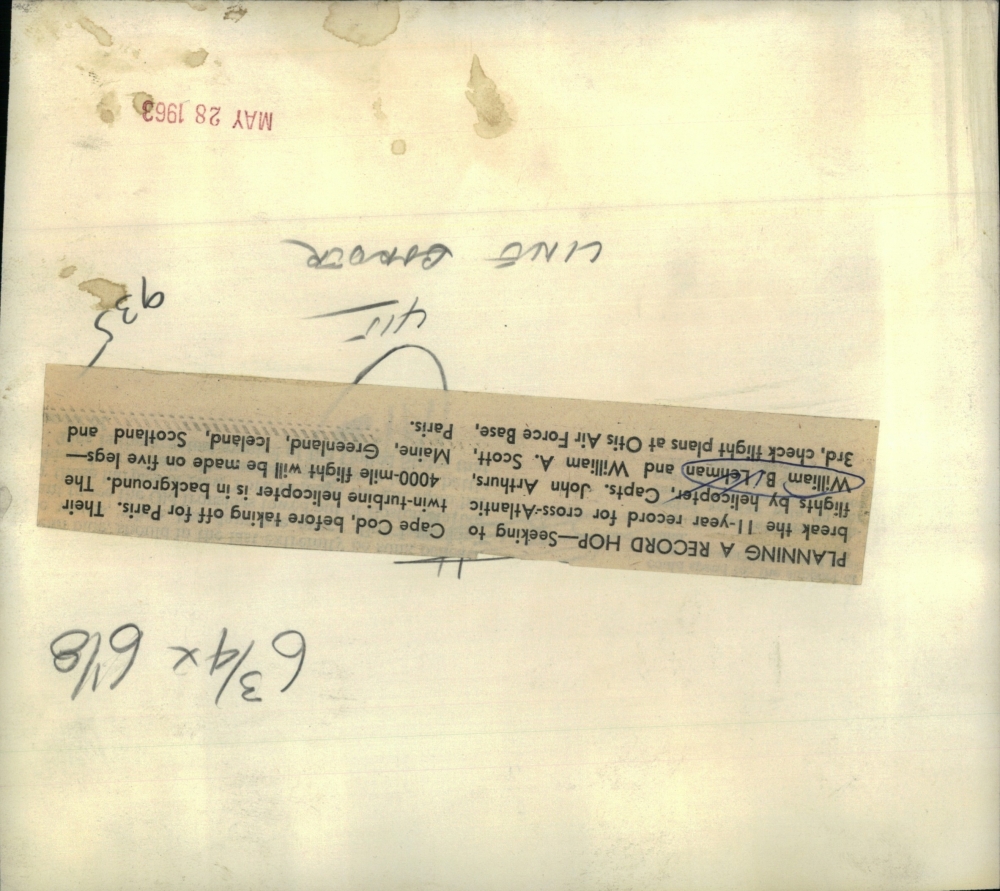 6 3/4 x 6 1/8
PLANNING A RECORD HOP—Seeking to
break the 11-year record for cross-Atlantic
flights by helicopter, Capts. John Arthurs,
William B. Lehman and William A. Scott,
3rd, check flight plans at Otis Air Force Base,
Cape Cod, before taking off for Paris. Their
twin-turbine helicopter is in background. The
4000-mile flight will be made on five legs—
Maine, Greenland, Iceland, Scotland and
Paris.
935
LINE BORDER
MAY 28 1963